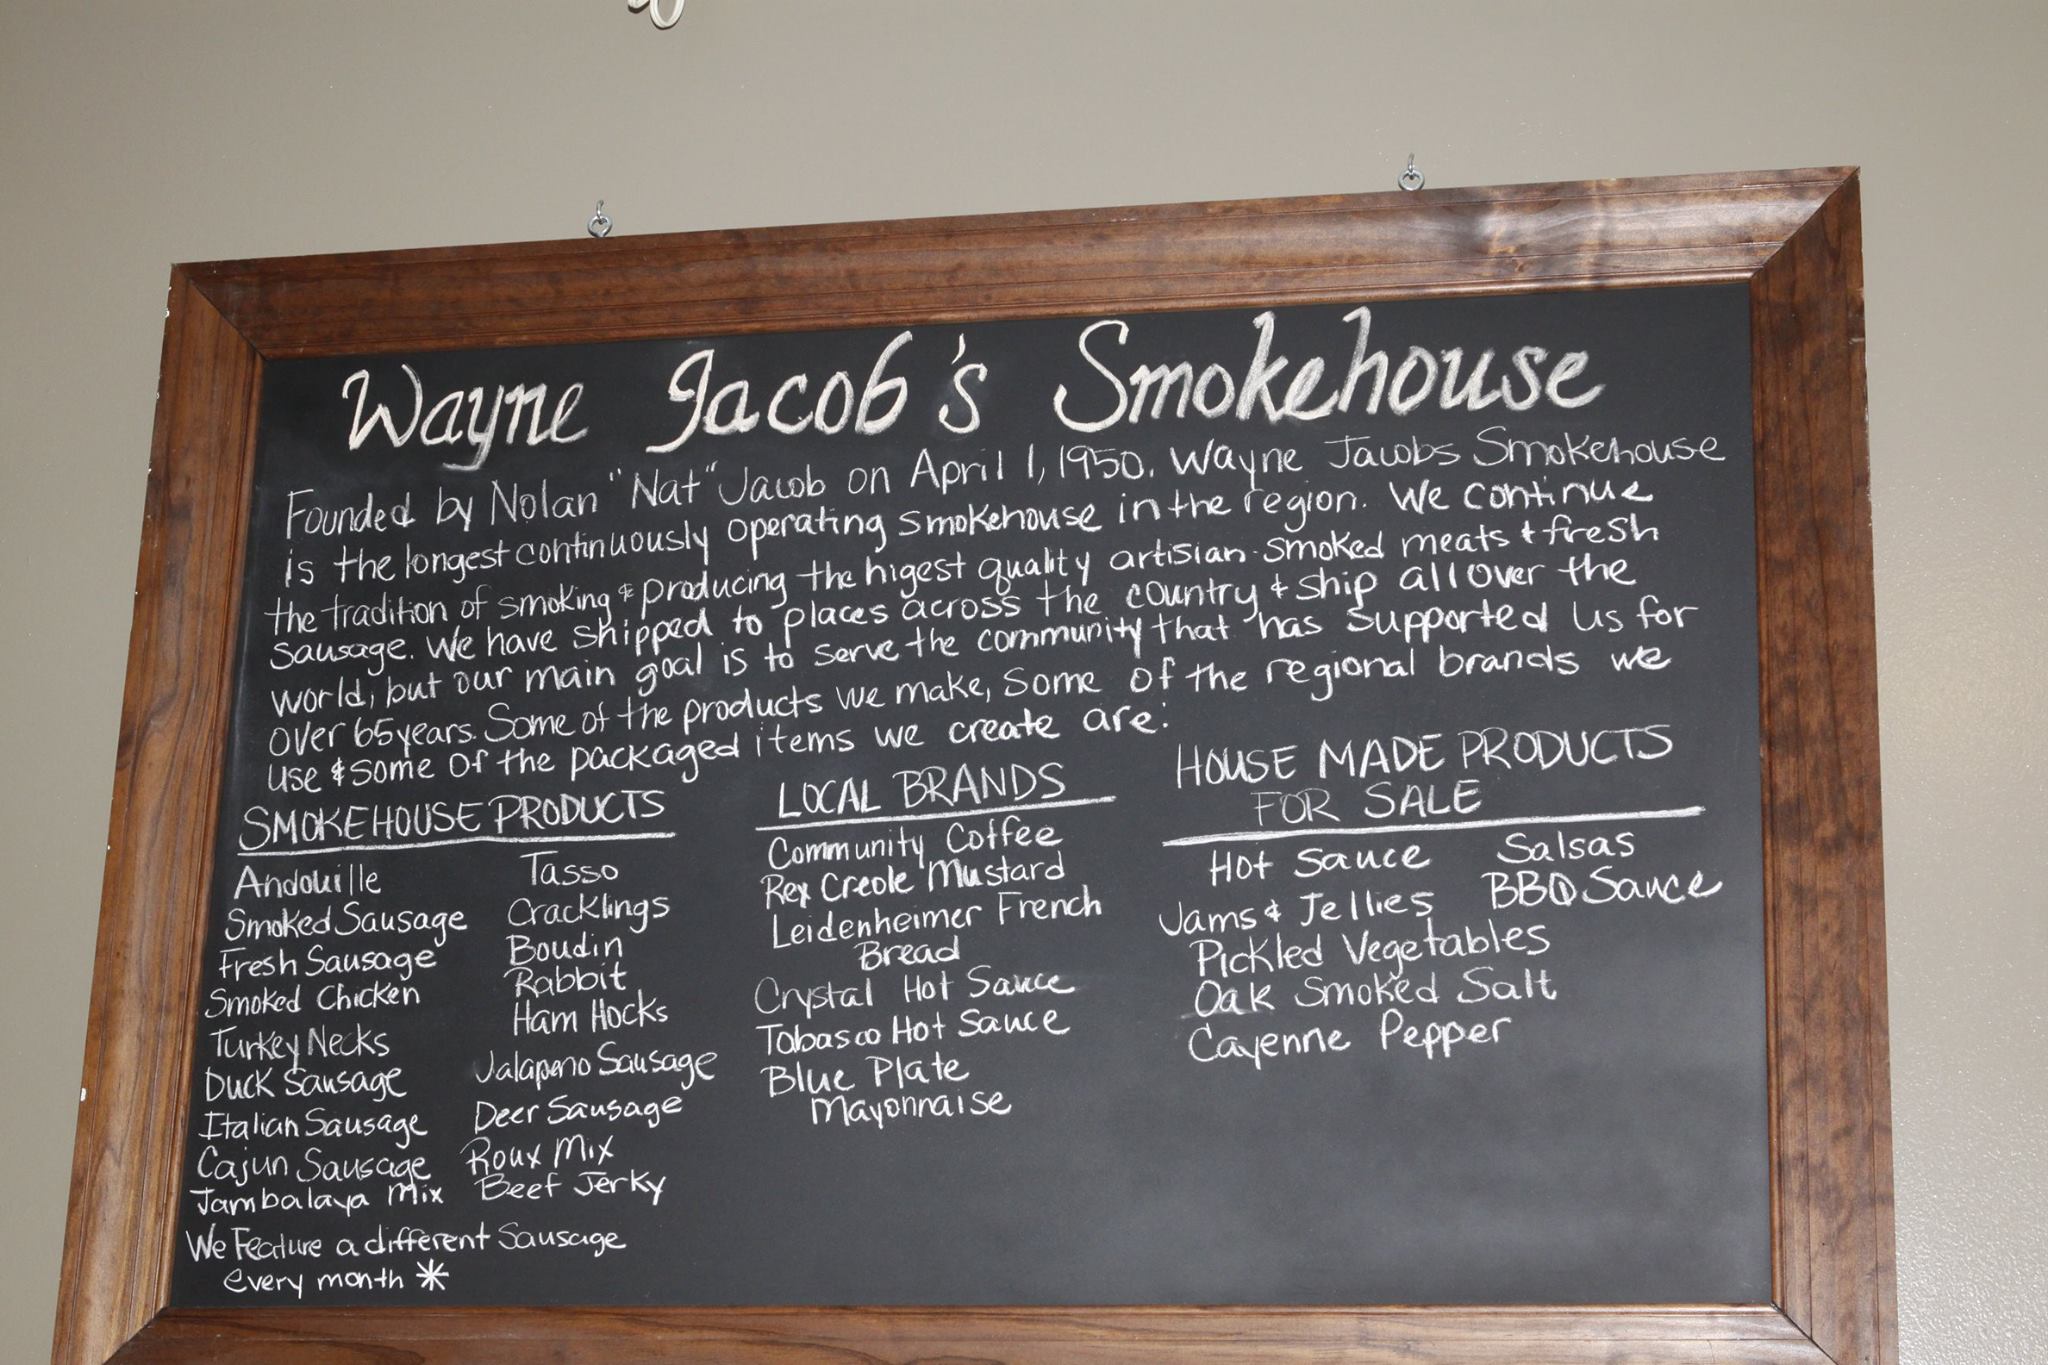 Wayne Jacob's Smokehouse
Founded by Nolan "Nat" Jacob on April 1, 1950. Wayne Jacobs Smokehouse
is the longest continuously operating smokehouse in the region. We continue
the tradition of smoking & producing the higest quality artisian smoked meats & fresh
sausage. We have shipped to places across the country & ship all over the
world, but our main goal is to serve the community that has supported us for
over 65 years. Some of the products we make, some of the regional brands we
use & some of the packaged items we create are:
SMOKEHOUSE PRODUCTS
Andouille
Smoked Sausage
Fresh Sausage
Smoked Chicken
Turkey Necks
Duck Sausage
Italian Sausage
Cajun Sausage
Jambalaya Mix
Tasso
Cracklings
Boudin
Rabbit
Ham Hocks
Jalapeno Sausage
Deer Sausage
Roux Mix
Beef Jerky
We Feature a different Sausage
every month *
LOCAL BRANDS
Community Coffee
Rex Creole Mustard
Leidenheimer French
Bread
Crystal Hot Sauce
Tobasco Hot Sauce
Blue Plate
Mayonnaise
HOUSE MADE PRODUCTS
FOR SALE
Hot Sauce
Jams & Jellies
Pickled Vegetables
Oak Smoked Salt
Cayenne Pepper
Salsas
BBQ Sauce